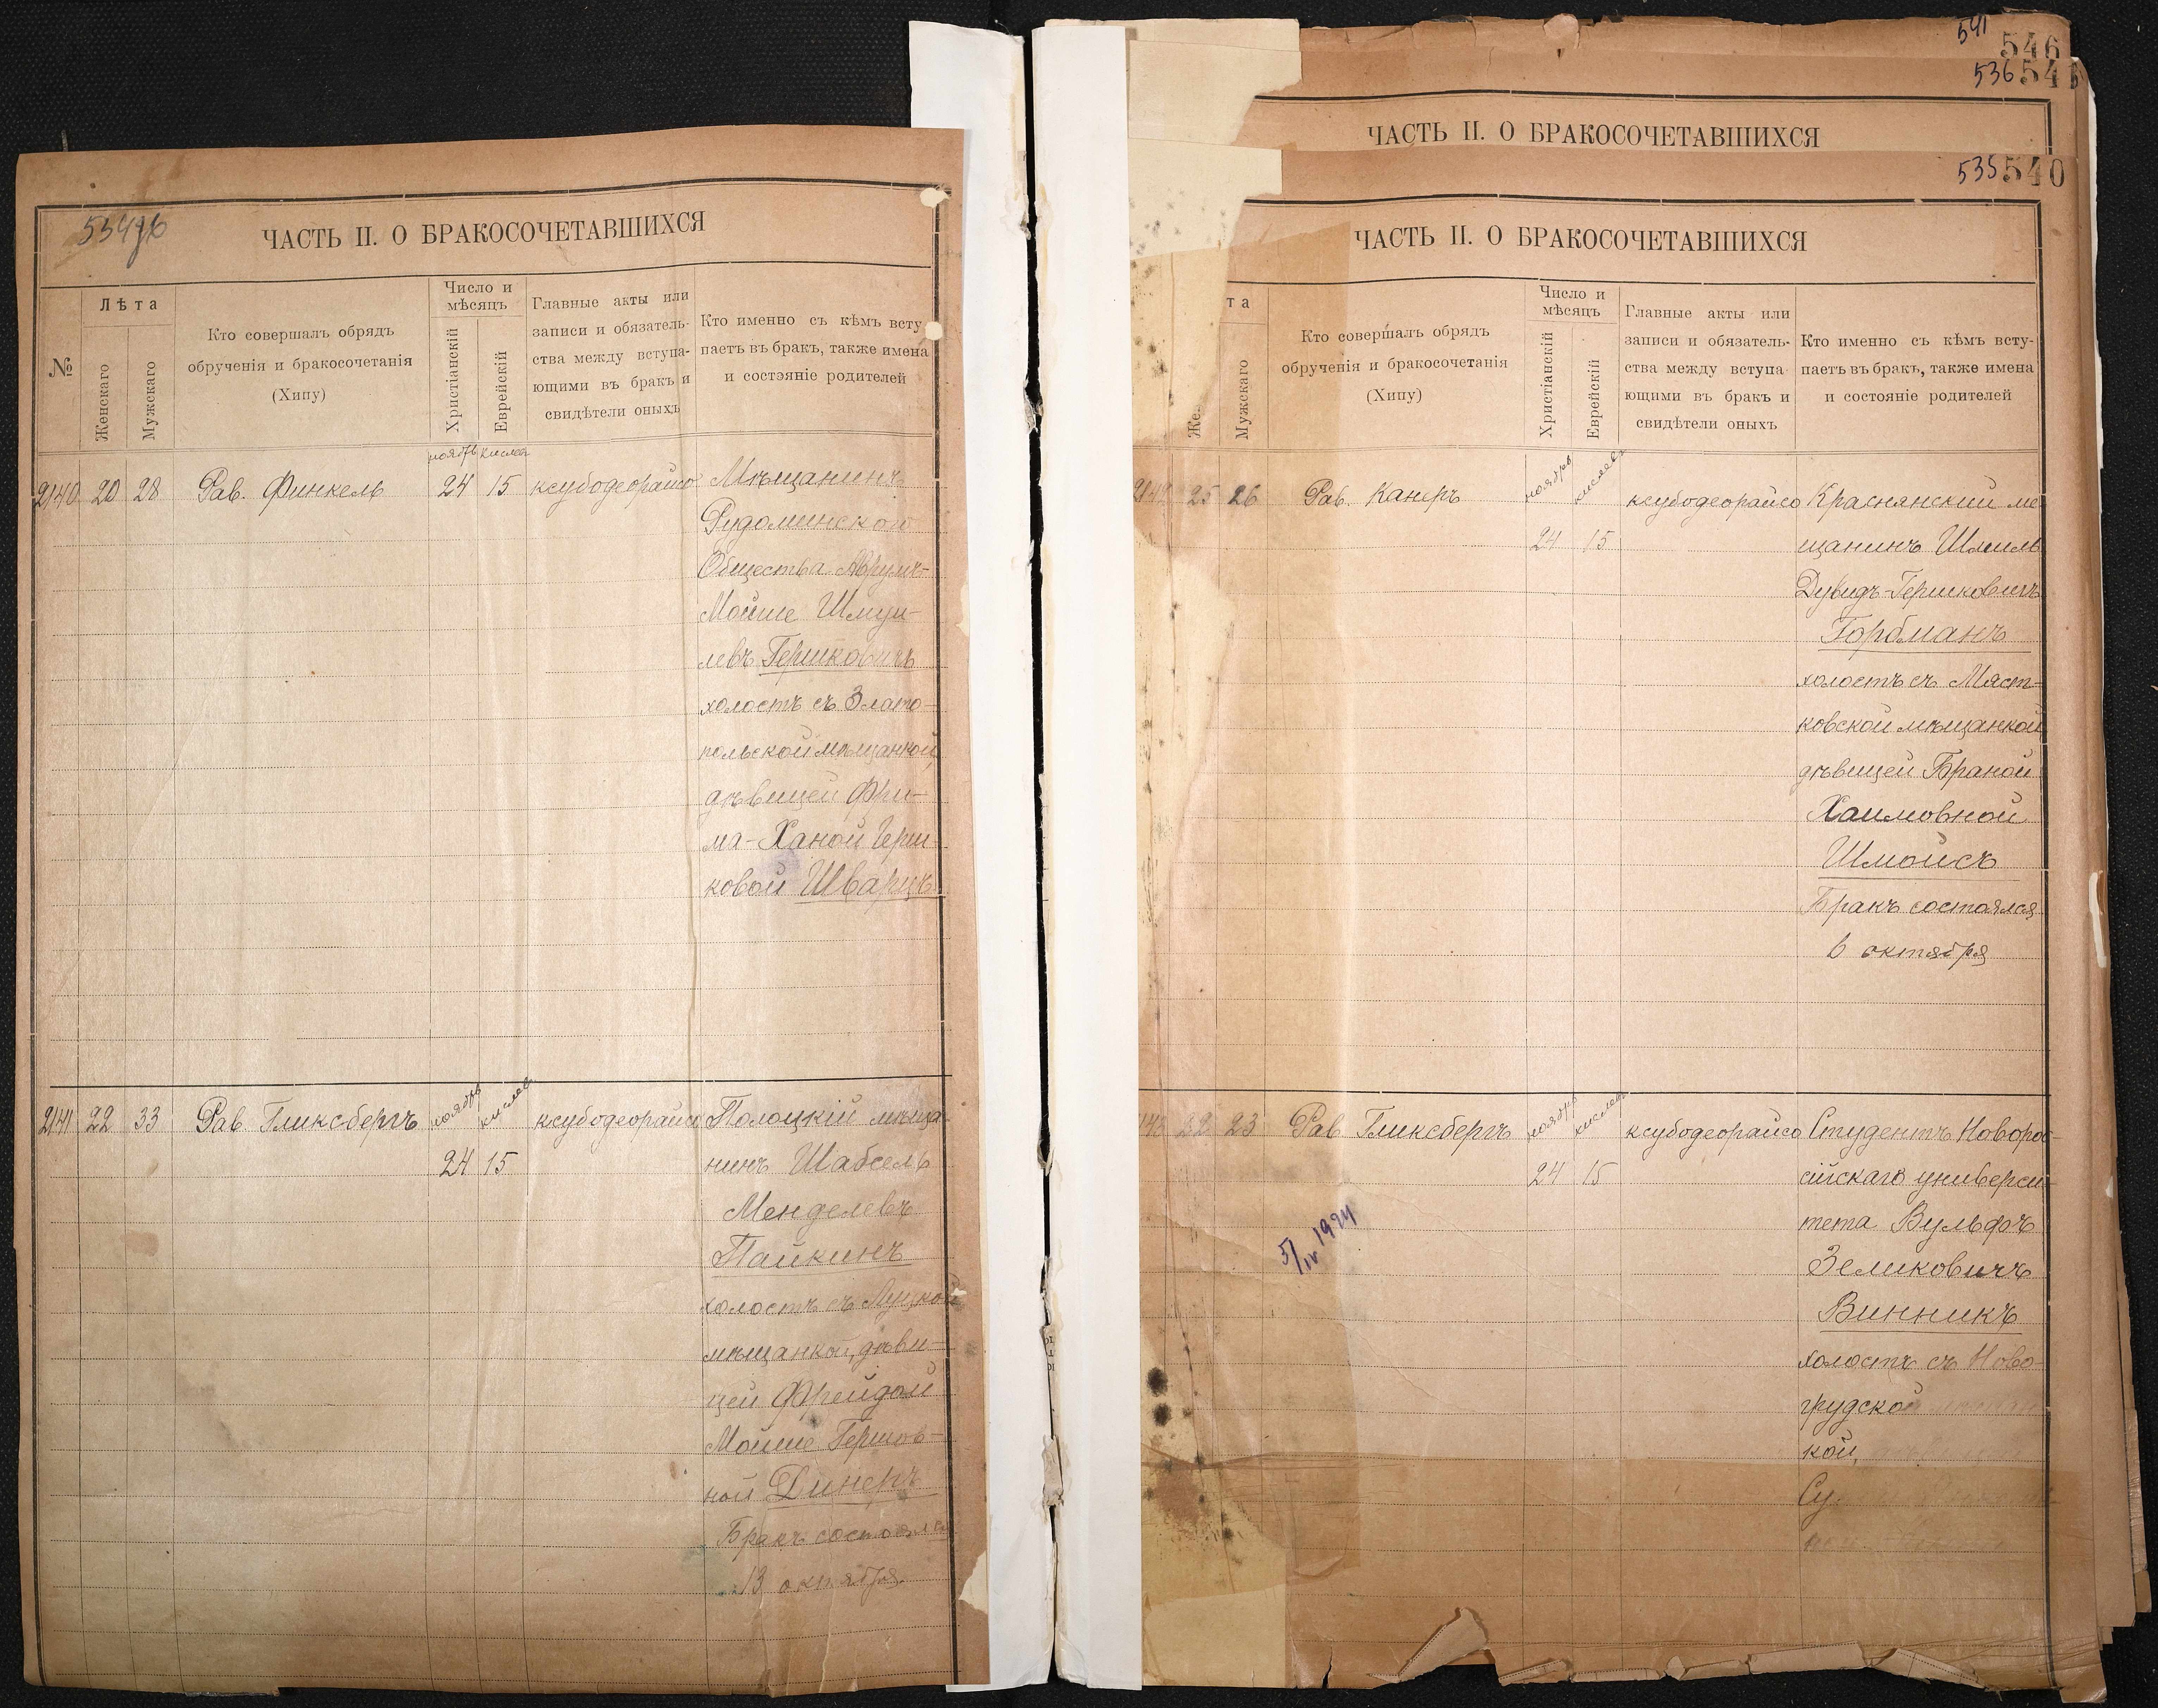 554
ЧАСТЬ II. О БРАКОСОЧЕТАВШИХСЯ
№
Лѣта
Женскаго
Мужскаго
Кто совершалъ обрядъ
обрученія и бракосочетанія
(Хипу)
Число и
мѣсяцъ
Христіанскій
Еврейскій
Главные акты или
записи и обязатель-
ства между вступа-
ющими въ бракъ и
свидѣтели оныхъ
Кто именно съ кѣмъ всту
паетъ въ бракъ, также имена
и состэяніе родителей
ноябрь кислев
2140 20 28 Рав. Финкель 24 15 ксубодеорайсо Мѣщанинъ
Рудоминского
Общества Аврумъ-
Мойше Шмуи-
левъ Гершковичъ
холостъ съ Злато-
польской мѣщанкой,
дѣвицей Фри-
ма-Ханой Герш-
ковой Шварцъ
2141 22 33 Рав. Гликсбергъ ноябрь кислев ксубодеорайсо Полоцкій мѣща-
24 15 нинъ Шабсель
Менделевъ
Пайкинъ
холостъ съ Луцкой
мѣщанкой, дѣви-
цей Фрейдой
Мойше Гершов-
ной Динеръ
Бракъ состоялся
13 октября
541
546
536 54
ЧАСТЬ II. О БРАКОСОЧЕТАВШИХСЯ
535 540
ЧАСТЬ II. О БРАКОСОЧЕТАВШИХСЯ
та
Же
Мужскаго
Кто совершалъ обрядъ
обрученія и бракосочетанія
(Хипу)
Число и
мѣсяцъ
Христіанскій
Еврейскій
Главные акты или
записи и обязатель-
ства между вступа
ющими въ бракъ и
свидѣтели оныхъ
Кто именно съ кѣмъ всту-
паетъ въ бракъ, также имена
и состояніе родителей
2142 25 26 Рав. Канеръ ноябрь кислевъ ксубодеорайсо Краснянский ме
24 15 щанинъ Шмиль
Дувидъ-Гершковичъ
Горбманъ
холостъ съ Мяст-
ковской мѣщанкой
дѣвицей Браной
Хаимовной
Шмойсъ
Бракъ состоялся
6 октября
143 22 23 Рав Гликсбергъ ноябрь кислевъ ксубодеорайсо Студентъ Новорос-
24 15 сійскаго универси-
тета Вульфъ
5/IV 1924
Зеликовичъ
Винникъ
холостъ съ Ново-
грудской
кой,
Су